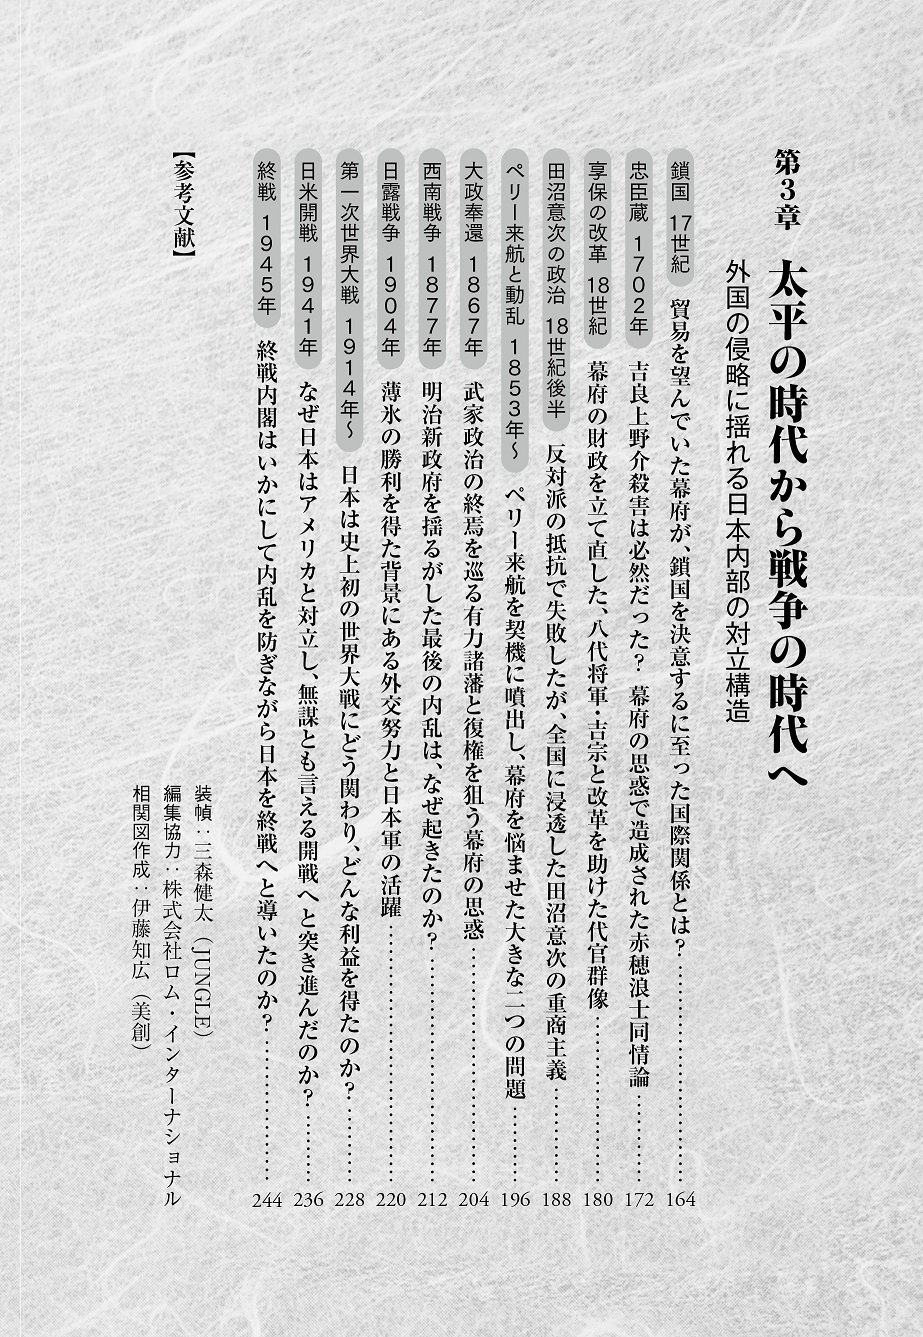 第3章 太平の時代から戦争の時代へ
外国の侵略に揺れる日本内部の対立構造
鎖国 17世紀 貿易を望んでいた幕府が、鎖国を決意するに至った国際関係とは？……………… 164
忠臣蔵 1702年 吉良上野介殺害は必然だった？ 幕府の思惑で造成された赤穂浪士同情論……… 172
享保の改革 18世紀 幕府の財政を立て直した、八代将軍・吉宗と改革を助けた代官群像…………… 180
田沼意次の政治 18世紀後半 反対派の抵抗で失敗したが、全国に浸透した田沼意次の重商主義……… 188
ペリー来航と動乱 1853年〜 ペリー来航を契機に噴出し、幕府を悩ませた大きな二つの問題……… 196
大政奉還 1867年 武家政治の終焉を巡る有力諸藩と復権を狙う幕府の思惑……………… 204
西南戦争 1877年 明治新政府を揺るがした最後の内乱は、なぜ起きたのか？……………… 212
日露戦争 1904年 薄氷の勝利を得た背景にある外交努力と日本軍の活躍……………… 220
第一次世界大戦 1914年〜 日本は史上初の世界大戦にどう関わり、どんな利益を得たのか？……… 228
日米開戦 1941年 なぜ日本はアメリカと対立し、無謀とも言える開戦へと突き進んだのか？……… 236
終戦 1945年 終戦内閣はいかにして内乱を防ぎながら日本を終戦へと導いたのか？…………… 244
【参考文献】
装幀：三森健太（JUNGLE）
編集協力：株式会社ロム・インターナショナル
相関図作成：伊藤知広（美創）